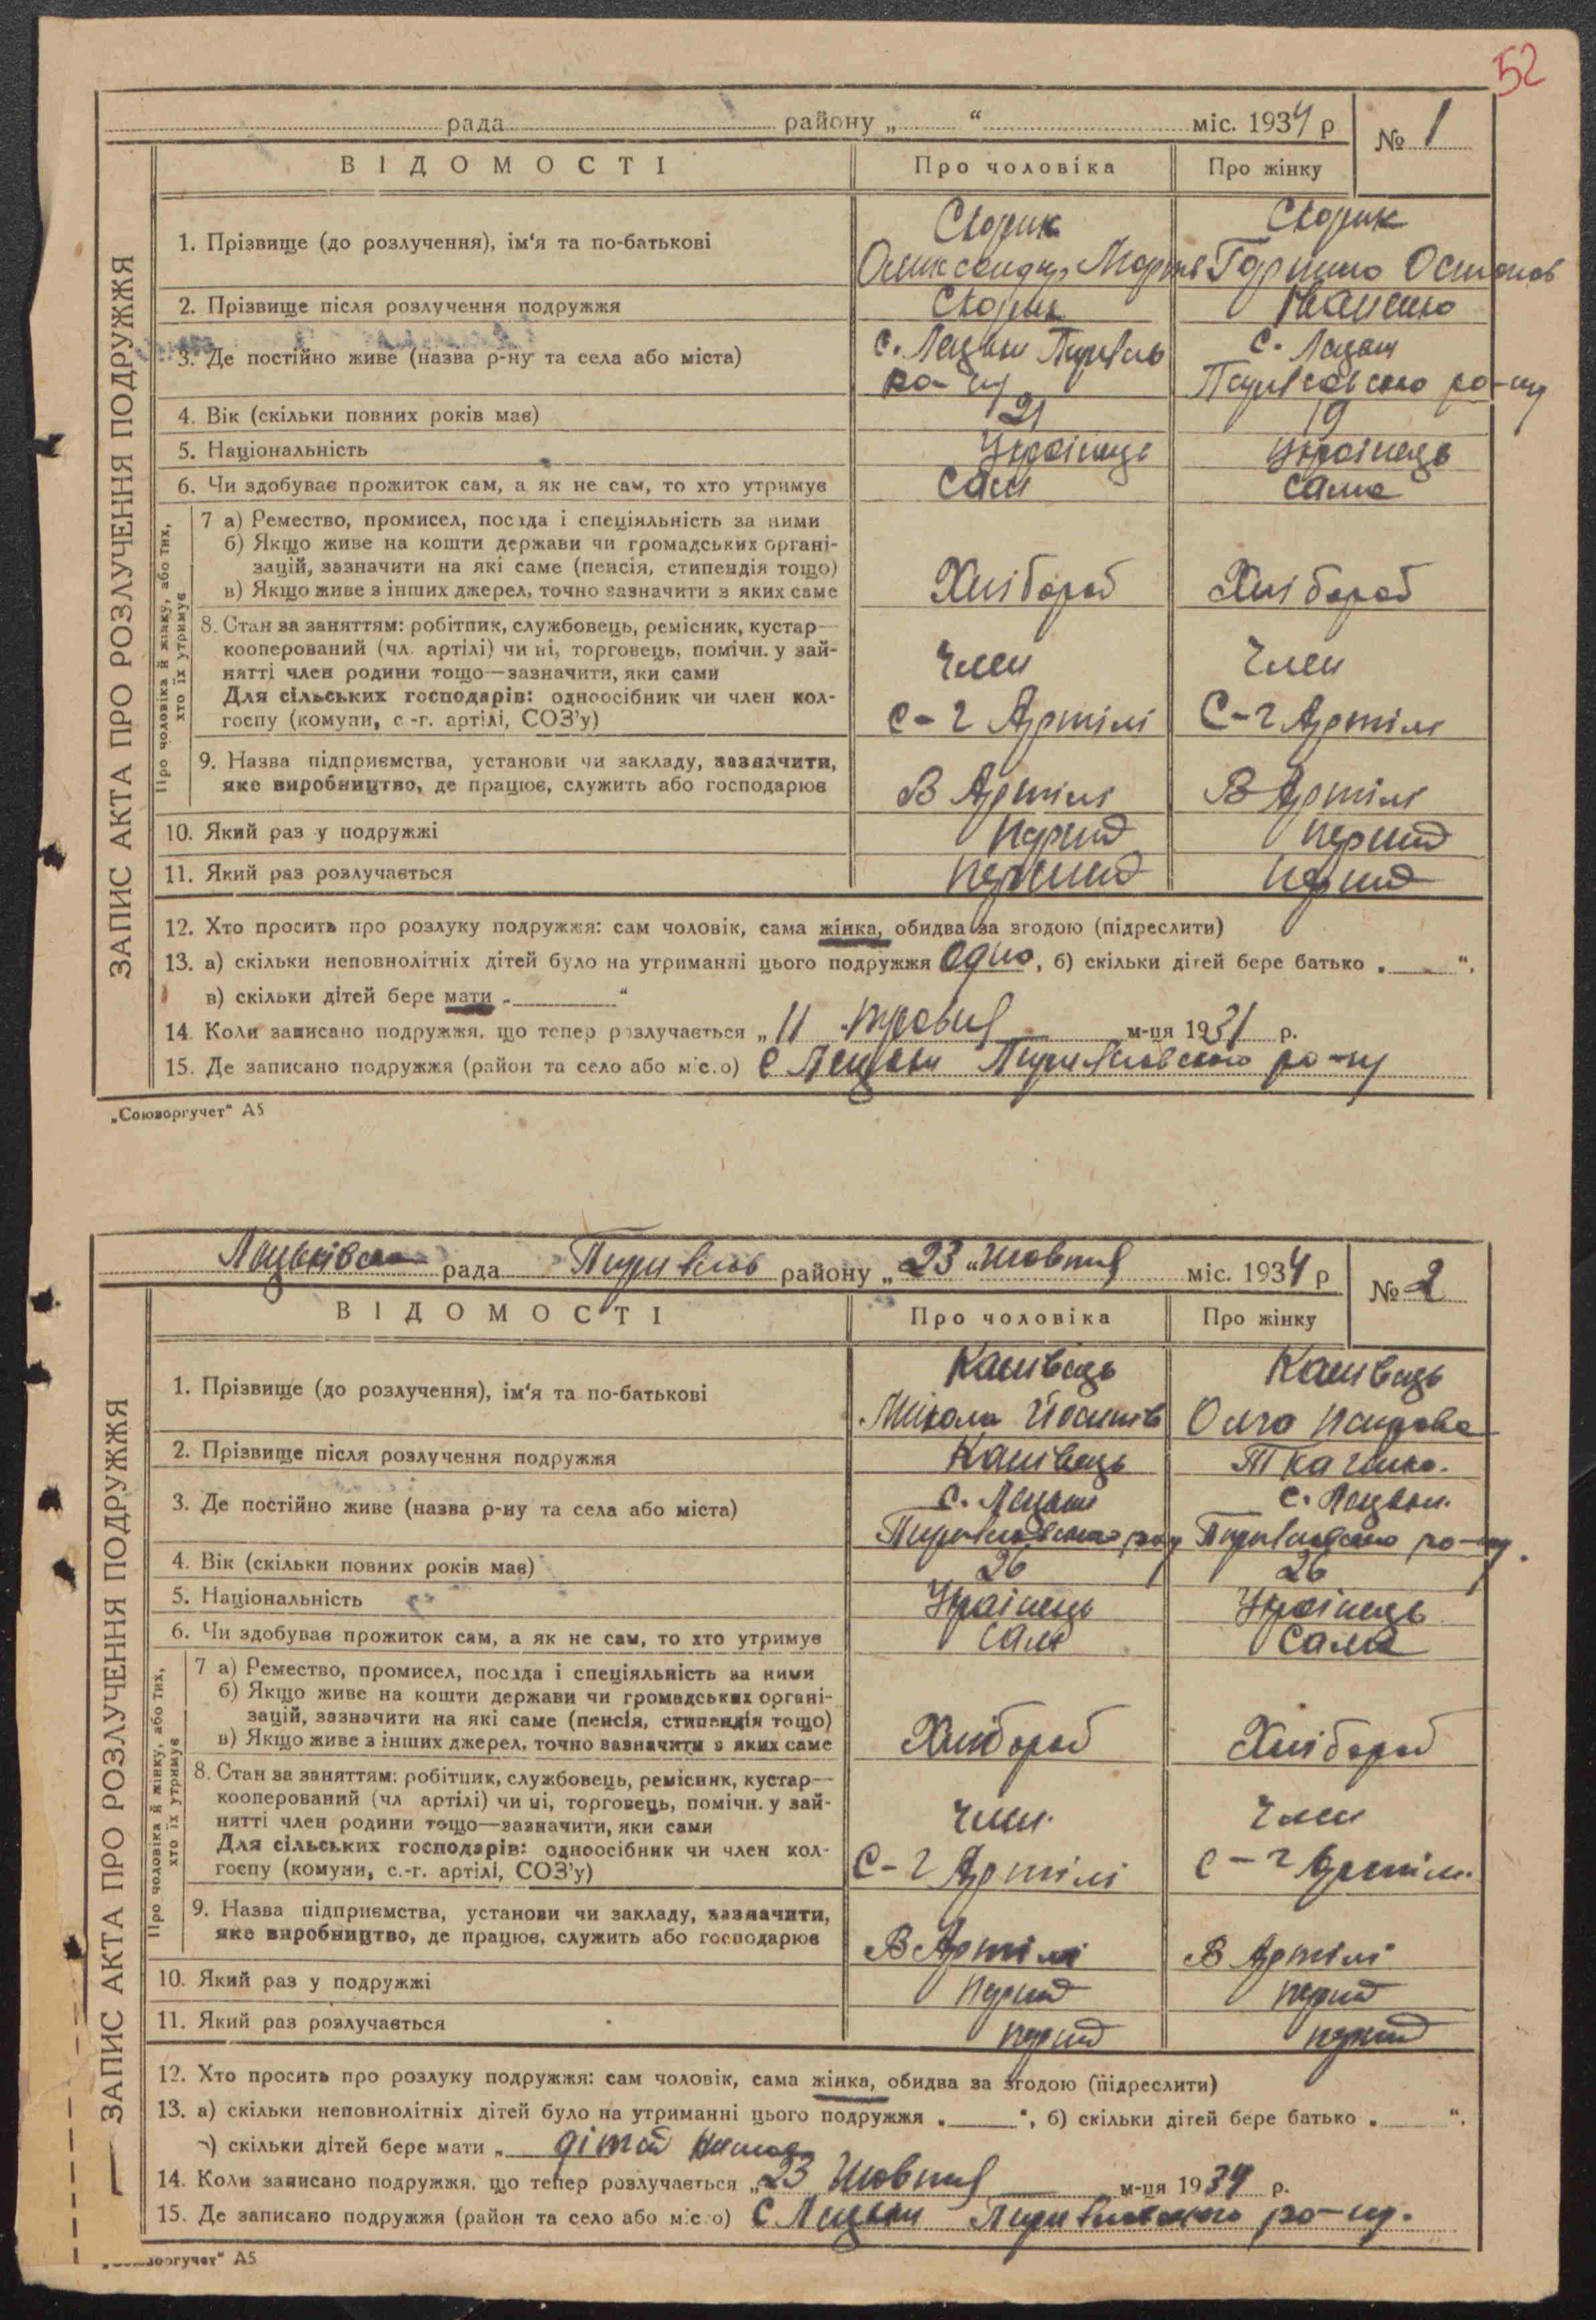 52
рада району „ “ міс. 1934 р № 1
ЗАПИС АКТА ПРО РОЗЛУЧЕННЯ ПОДРУЖЖЯ
ВІДОМОСТІ Про чоловіка Про жінку
1. Прізвище (до розлучення), ім'я та по-батькові
2. Прізвище після розлучення подружжя
3. Де постійно живе (назва р-ну та села або міста) с. Лецьки с. Лецьки
4. Вік (скільки повних років має) 21 19
5. Національність Українець Українець
6. Чи здобуває прожиток сам, а як не сам, то хто утримує сам сама
Про чоловіка й жінку, або тих, хто їх утримує
7 а) Ремество, промисел, посада і спеціяльність за ними
б) Якщо живе на кошти держави чи громадських органі-
зацій, зазначити на які саме (пенсія, стипендія тощо)
в) Якщо живе з інших джерел, точно зазначити з яких саме Хлібороб Хлібороб
8. Стан за заняттям: робітник, службовець, ремісник, кустар—
кооперований (чл. артілі) чи ні, торговець, помічн. у зай-
нятті член родини тощо—зазначити, яки сами Член Член
Для сільських господарів: одноосібник чи член кол-
госпу (комуни, с.-г. артілі, СОЗ'у) с-г Артілі С-г Артілі
9. Назва підприємства, установи чи закладу, зазначити,
яке виробництво, де працює, служить або господарює В Артілі В Артілі
10. Який раз у подружжі перший перший
11. Який раз розлучається перший перший
12. Хто просить про розлуку подружжя: сам чоловік, сама жінка, обидва за згодою (підреслити)
13. а) скільки неповнолітніх дітей було на утриманні цього подружжя одно, б) скільки дітей бере батько „ “,
в) скільки дітей бере мати „ “
14. Коли записано подружжя, що тепер розлучається „11 травня м-ця 1931 р.
15. Де записано подружжя (район та село або місто) с Лецьки ро-ну
„Союзоргучет“ А5
рада району „23 “ жовтня міс. 1934 р № 2
ЗАПИС АКТА ПРО РОЗЛУЧЕННЯ ПОДРУЖЖЯ
ВІДОМОСТІ Про чоловіка Про жінку
1. Прізвище (до розлучення), ім'я та по-батькові
2. Прізвище після розлучення подружжя
3. Де постійно живе (назва р-ну та села або міста) с. Лецьки с. Лецьки.
4. Вік (скільки повних років має) 26 26
5. Національність Українець Українець
6. Чи здобуває прожиток сам, а як не сам, то хто утримує сам сама
Про чоловіка й жінку, або тих, хто їх утримує
7 а) Ремество, промисел, посада і спеціяльність за ними
б) Якщо живе на кошти держави чи громадських органі-
зацій, зазначити на які саме (пенсія, стипендія тощо)
в) Якщо живе з інших джерел, точно зазначити з яких саме Хлібороб Хлібороб
8. Стан за заняттям: робітник, службовець, ремісник, кустар—
кооперований (чл артілі) чи ні, торговець, помічн. у зай-
нятті член родини тощо—зазначити, яки сами Член Член
Для сільських господарів: одноосібник чи член кол-
госпу (комуни, с.-г. артілі, СОЗ'у) С-г Артілі С-г Артілі
9. Назва підприємства, установи чи закладу, зазначити,
яке виробництво, де працює, служить або господарює В Артілі В Артілі
10. Який раз у подружжі перший перший
11. Який раз розлучається перший перший
12. Хто просить про розлуку подружжя: сам чоловік, сама жінка, обидва за згодою (підреслити)
13. а) скільки неповнолітніх дітей було на утриманні цього подружжя „ “, б) скільки дітей бере батько „ “,
) скільки дітей бере мати „ дітей
14. Коли записано подружжя, що тепер розлучається „23 жовтня м-ця 1934 р.
15. Де записано подружжя (район та село або місто) с Лецьки ро-ну.
„Союзоргучет“ А5